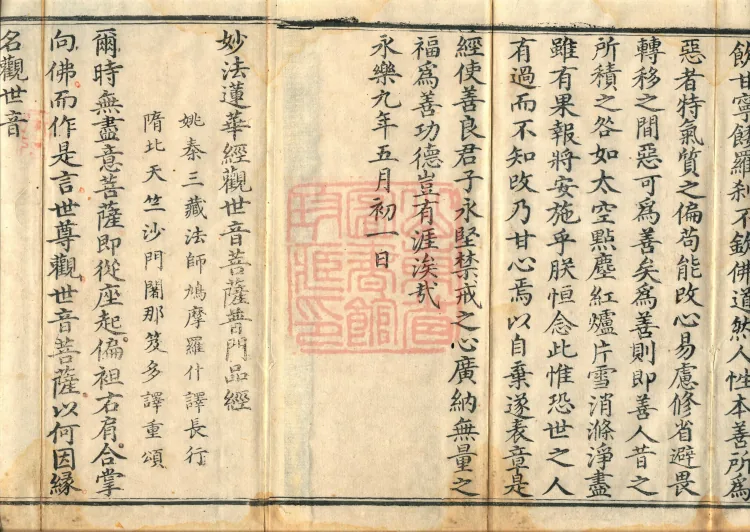 飲甘寧餒羅刹不欽佛道然人性本善所為
惡者特氣質之偏苟能改心易慮修省避畏
轉移之間惡可為善矣為善則即善人昔之
所積之咎如太空點塵紅爐片雪消滌淨盡
雖有果報將安施乎朕恒念此惟恐世之人
有過而不知改乃甘心焉以自棄遂表章是
經使善良君子永堅禁戒之心廣納無量之
福為善功德豈有涯涘哉
永樂九年五月初一日
妙法蓮華經觀世音菩薩普門品經
姚秦三藏法師鳩摩羅什譯長行
隋北天竺沙門闍那笈多譯重頌
爾時無盡意菩薩即從座起偏袒右肩合掌
向佛而作是言世尊觀世音菩薩以何因緣
名觀世音